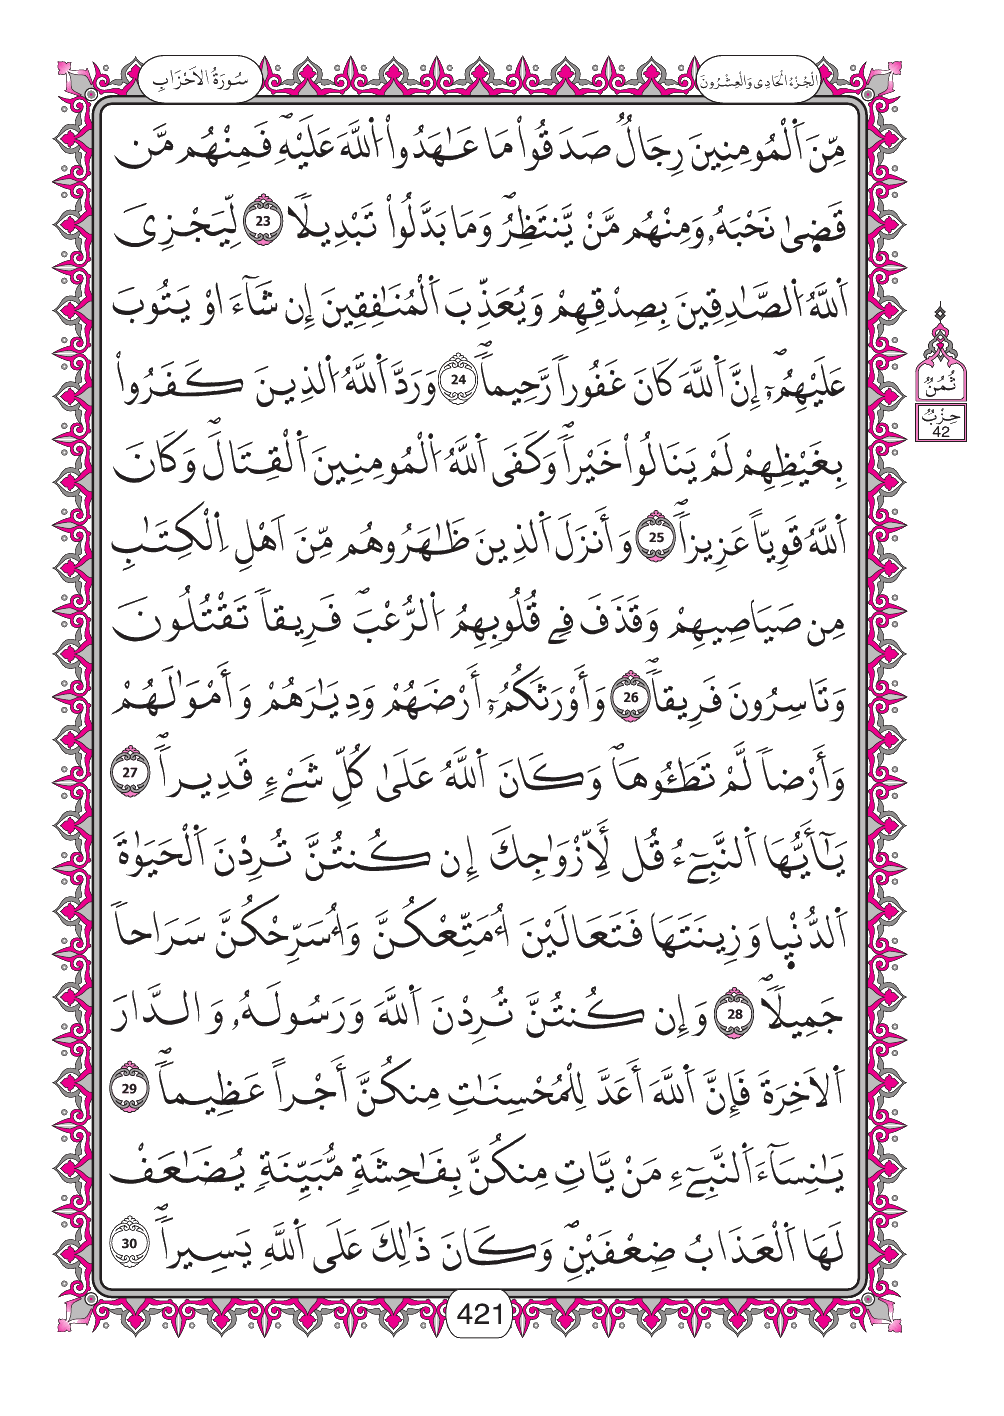 سُورَةُ الاَحْزَابِ
الْجُزْءُ الْحَادِي وَالْعِشْرُونَ
مِّنَ اَ۬لْمُومِنِينَ رِجَالٞ صَدَقُواْ مَا عَٰهَدُواْ اُ۬للَّهَ عَلَيْهِۖ فَمِنْهُم مَّن
قَض۪يٰ نَحْبَهُۥ وَمِنْهُم مَّنْ يَّنتَظِرُۖ وَمَا بَدَّلُواْ تَبْدِيلاٗ 23 لِّيَجْزِيَ
اَ۬للَّهُ اُ۬لصَّٰدِقِينَ بِصِدْقِهِمْ وَيُعَذِّبَ اَ۬لْمُنَٰفِقِينَ إِن شَآءَ اَوْ يَتُوبَ
عَلَيْهِمُۥٓۖ إِنَّ اَ۬للَّهَ كَانَ غَفُوراٗ رَّحِيماٗۖ 24 وَرَدَّ اَ۬للَّهُ اُ۬لذِينَ كَفَرُواْ
بِغَيْظِهِمْ لَمْ يَنَالُواْ خَيْراٗۖ وَكَفَى اَ۬للَّهُ اُ۬لْمُومِنِينَ اَ۬لْقِتَالَۖ وَكَانَ
اَ۬للَّهُ قَوِيّاً عَزِيزاٗۖ 25 وَأَنزَلَ اَ۬لذِينَ ظَٰهَرُوهُم مِّنَ اَهْلِ اِ۬لْكِتَٰبِ
مِن صَيَاصِيهِمْ وَقَذَفَ فِے قُلُوبِهِمُ اُ۬لرُّعْبَۖ فَرِيقاٗ تَقْتُلُونَ
وَتَاسِرُونَ فَرِيقاٗۖ 26 وَأَوْرَثَكُمُۥٓ أَرْضَهُمْ وَدِيَٰرَهُمْ وَأَمْوَٰلَهُمْ
وَأَرْضاٗ لَّمْ تَطَـُٔوهَاۖ وَكَانَ اَ۬للَّهُ عَلَىٰ كُلِّ شَےْءٖ قَدِيراٗۖ 27
يَٰٓأَيُّهَا اَ۬لنَّبِےٓءُ قُل لِّأَزْوَٰجِكَ إِن كُنتُنَّ تُرِدْنَ اَ۬لْحَيَوٰةَ
اَ۬لدُّنْي۪ا وَزِينَتَهَا فَتَعَالَيْنَ أُمَتِّعْكُنَّ وَأُسَرِّحْكُنَّ سَرَاحاٗ
جَمِيلاٗۖ 28 وَإِن كُنتُنَّ تُرِدْنَ اَ۬للَّهَ وَرَسُولَهُۥ وَالدَّارَ
اَ۬لَاخِرَةَ فَإِنَّ اَ۬للَّهَ أَعَدَّ لِلْمُحْسِنَٰتِ مِنكُنَّ أَجْراً عَظِيماٗۖ 29
يَٰنِسَآءَ اَ۬لنَّبِےٓءِ مَنْ يَّاتِ مِنكُنَّ بِفَٰحِشَةٖ مُّبَيِّنَةٖ يُضَٰعَفْ
لَهَا اَ۬لْعَذَابُ ضِعْفَيْنِۖ وَكَانَ ذَٰلِكَ عَلَى اَ۬للَّهِ يَسِيراٗۖ 30
ثُمُنٌ
حِزْبٌ
42
421